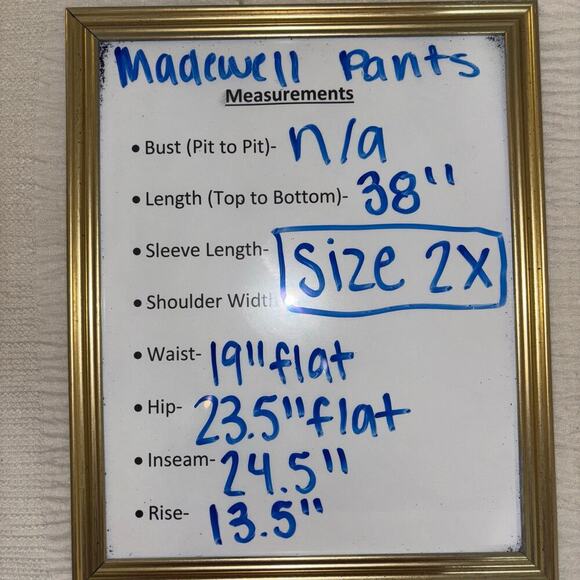 Madewell Pants
Measurements
• Bust (Pit to Pit)- n/a
• Length (Top to Bottom)- 38"
• Sleeve Length-
Size 2X
• Shoulder Width
• Waist- 19" flat
• Hip- 23.5" flat
• Inseam- 24.5"
• Rise- 13.5"